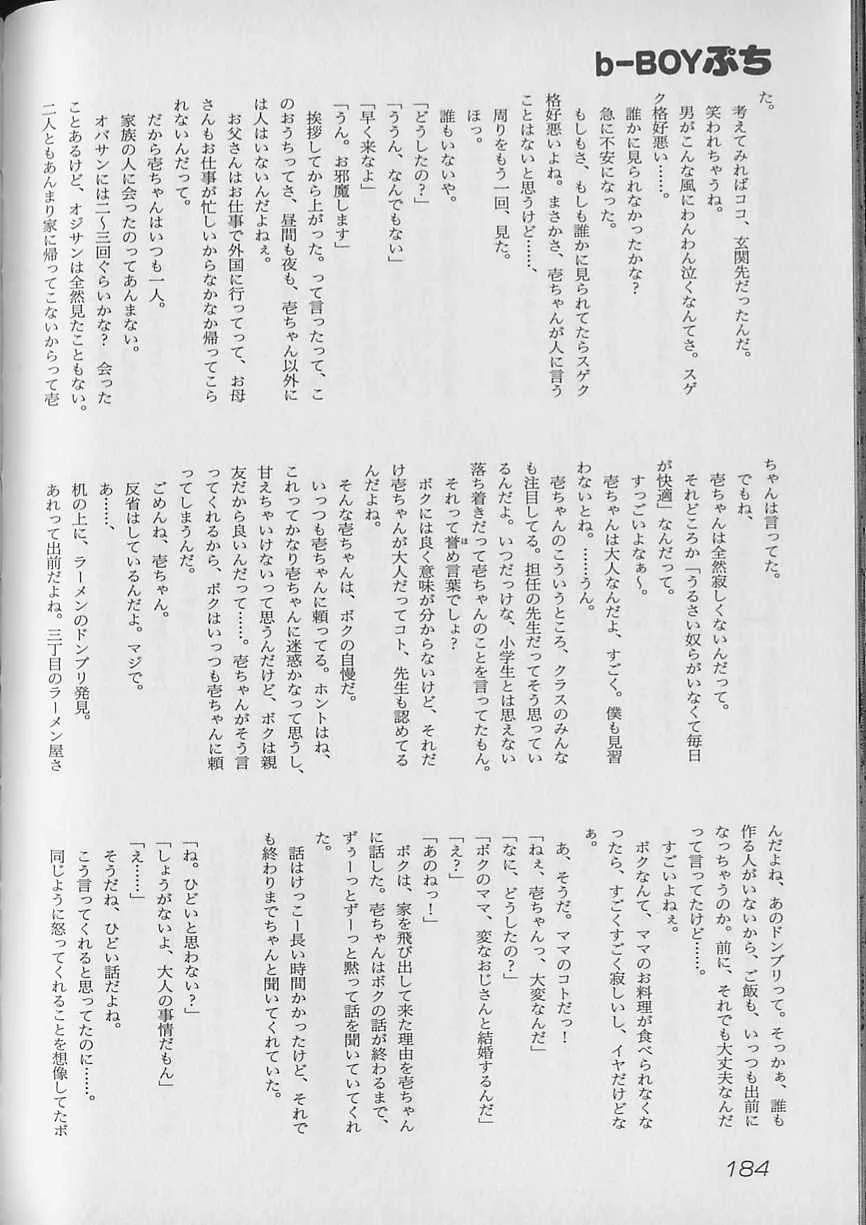 b-BOYぷち
た。
考えてみればココ、玄関先だったんだ。
笑われちゃうね。
男がこんな風にわんわん泣くなんてさ。スゲ
ク格好悪い……。
誰かに見られなかったかな?
急に不安になった。
もしもさ、もしも誰かに見られてたらスゲク
格好悪いよね。まさかさ、壱ちゃんが人に言う
ことはないと思うけど……、
周りをもう一回、見た。
ほっ。
誰もいないや。
「どうしたの?」
「ううん、なんでもない」
「早く来なよ」
「うん。お邪魔します」
挨拶してから上がった。って言ったって、こ
のおうちってさ、昼間も夜も、壱ちゃん以外に
は人はいないんだよねぇ。
お父さんはお仕事で外国に行ってって、お母
さんもお仕事が忙しいからなかなか帰ってこら
れないんだって。
だから壱ちゃんはいつも一人。
家族の人に会ったのってあんまない。
オバサンには二〜三回ぐらいかな? 会った
ことあるけど、オジサンは全然見たこともない。
二人ともあんまり家に帰ってこないからって壱
ちゃんは言ってた。
でもね、
壱ちゃんは全然寂しくないんだって。
それどころか「うるさい奴らがいなくて毎日
が快適」なんだって。
すっごいよなぁ〜。
壱ちゃんは大人なんだよ、すごく。僕も見習
わないとね。……うん。
壱ちゃんのこういうところ、クラスのみんな
も注目してる。担任の先生だってそう思ってい
るんだよ。いつだっけな、小学生とは思えない
落ち着きだって壱ちゃんのことを言ってたもん。
それって誉め言葉でしょ?
ボクには良く意味が分からないけど、それだ
け壱ちゃんが大人だってコト、先生も認めてる
んだよね。
そんな壱ちゃんは、ボクの自慢だ。
いっつも壱ちゃんに頼ってる。ホントはね、
これってかなり壱ちゃんに迷惑かなって思うし、
甘えちゃいけないって思うんだけど、ボクは親
友だから良いんだって……。壱ちゃんがそう言
ってくれるから、ボクはいっつも壱ちゃんに頼
ってしまうんだ。
ごめんね、壱ちゃん。
反省はしているんだよ。マジで。
あ……、
机の上に、ラーメンのドンブリ発見。
あれって出前だよね。三丁目のラーメン屋さ
んだよね、あのドンブリって。そっかぁ、誰も
作る人がいないから、ご飯も、いっつも出前に
なっちゃうのか。前に、それでも大丈夫なんだ
って言ってたけど……。
すごいよねぇ。
ボクなんて、ママのお料理が食べられなくな
ったら、すごくすごく寂しいし、イヤだけどな
ぁ。
あ、そうだ。ママのコトだっ!
「ねぇ、壱ちゃんっ、大変なんだ」
「なに、どうしたの?」
「ボクのママ、変なおじさんと結婚するんだ」
「え?」
「あのねっ!
ボクは、家を飛び出して来た理由を壱ちゃん
に話した。壱ちゃんはボクの話が終わるまで、
ずぅーっとずーっと黙って話を聞いていてくれ
た。
話はけっこー長い時間かかったけど、それで
も終わりまでちゃんと聞いてくれていた。
「ね。ひどいと思わない?」
「しょうがないよ、大人の事情だもん」
「え……」
そうだね、ひどい話だよね。
こう言ってくれると思ってたのに……。
同じように怒ってくれることを想像してたボ
184